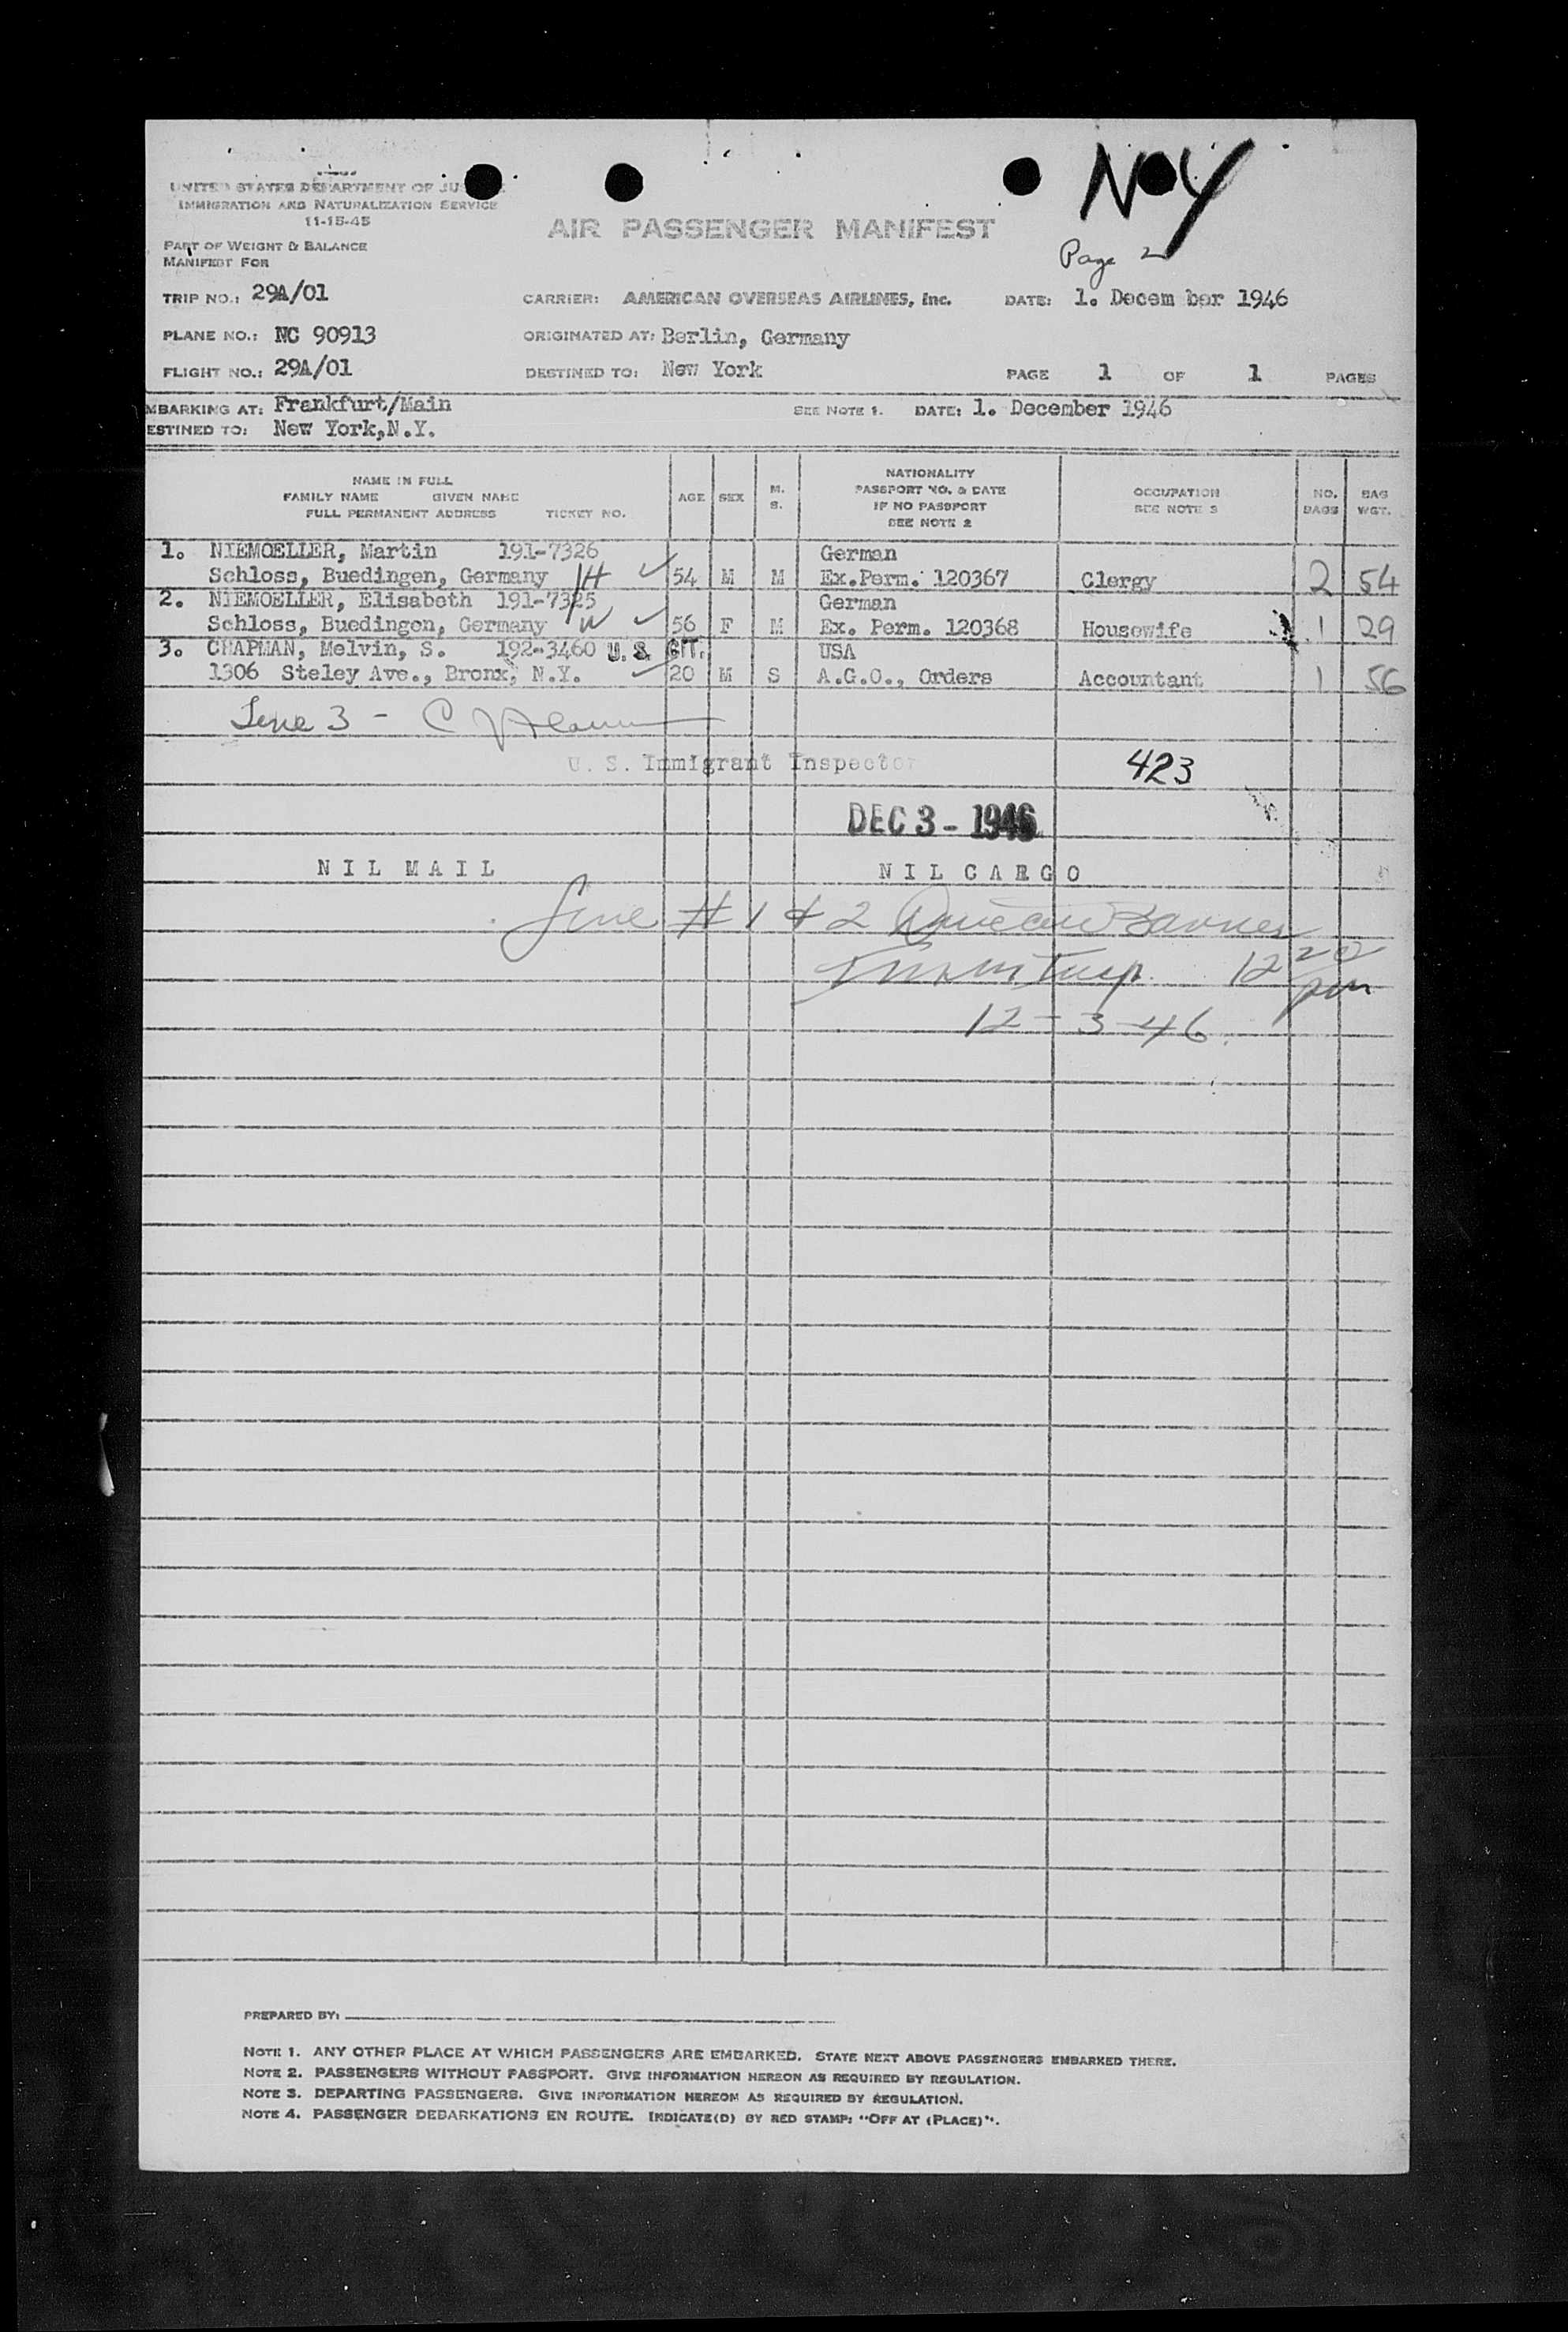 NY
UNITED STATES DEPARTMENT OF JUS
IMMIGRATION AND NATURALIZATION SERVICE
11-15-45
AIR PASSENGER MANIFEST
PART OF WEIGHT & BALANCE
MANIFEST FOR
Page 2
TRIP NO.: 29A/01 CARRIER: AMERICAN OVERSEAS AIRLINES, Inc. DATE: 1. Decem ber 1946
PLANE NO.: NC 90913 ORIGINATED AT: Berlin, Germany
FLIGHT NO.: 29A/01 DESTINED TO: New York PAGE 1 OF 1 PAGES
MBARKING AT: Frankfurt/Main SEE NOTE 1. DATE: 1. December 1946
ESTINED TO: New York,N.Y.
NAME IN FULL
FAMILY NAME GIVEN NAME
FULL PERMANENT ADDRESS TICKET NO.
AGE SEX M. S.
NATIONALITY
PASSPORT NO. & DATE
IF NO PASSPORT
SEE NOTE 2
OCCUPATION
SEE NOTE 3
NO. BAGS
BAG WGT.
1. NIEMOELLER, Martin 191-7326 German
Schloss, Buedingen, Germany H 54 M M Ex.Perm. 120367 Clergy 2 54
2. NIEMOELLER, Elisabeth 191-7325 German
Schloss, Buedingen, Germany W 56 F M Ex. Perm. 120368 Housewife 1 29
3. CHAPMAN, Melvin, S. 192-3460 U. S. CIT. USA
1306 Steley Ave., Bronx, N.Y. 20 M S A.G.O., Orders Accountant 1 56
Line 3 - C
U. S. Immigrant Inspector 423
DEC 3 - 1946
NIL MAIL NIL CARGO
Line # 1 & 2 Duncan Barnes
Immin Insp. 12 20 pm
12-3-46
PREPARED BY:
NOTE 1. ANY OTHER PLACE AT WHICH PASSENGERS ARE EMBARKED. STATE NEXT ABOVE PASSENGERS EMBARKED THERE.
NOTE 2. PASSENGERS WITHOUT PASSPORT. GIVE INFORMATION HEREON AS REQUIRED BY REGULATION.
NOTE 3. DEPARTING PASSENGERS. GIVE INFORMATION HEREON AS REQUIRED BY REGULATION.
NOTE 4. PASSENGER DEBARKATIONS EN ROUTE. INDICATE(D) BY RED STAMP: "OFF AT (PLACE)".